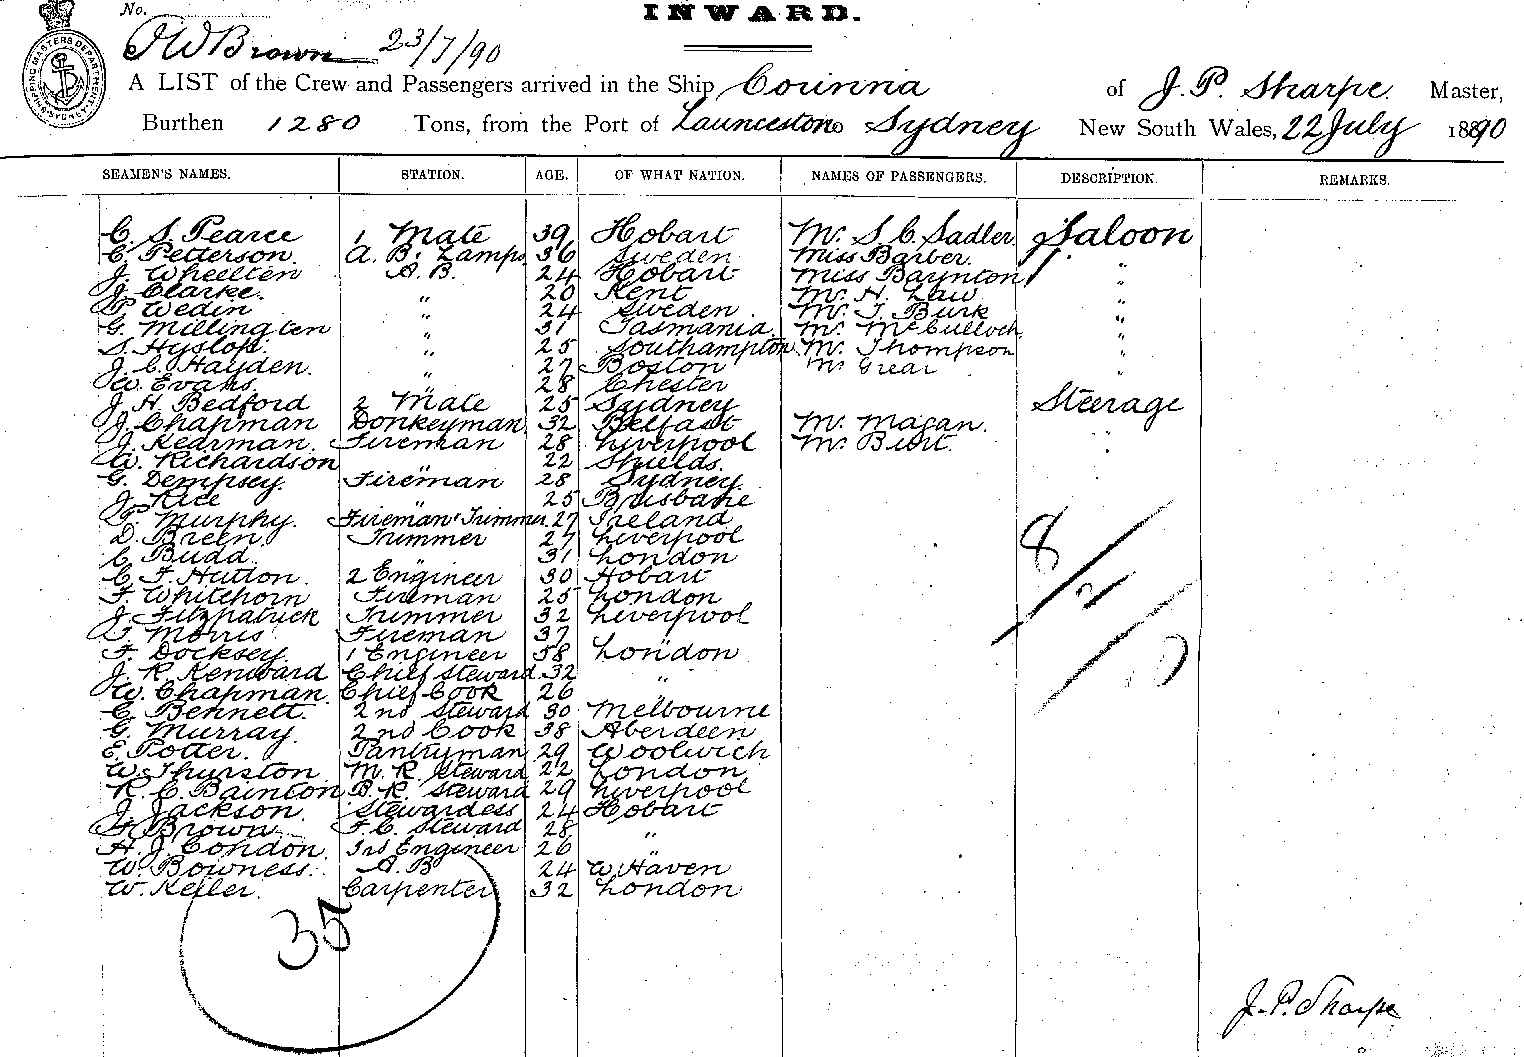 No.
INWARD.
J W Brown 23/7/90
A LIST of the Crew and Passengers arrived in the Ship Corinna of J. P. Sharpe Master,
Burthen 1280 Tons, from the Port of Launceston to Sydney New South Wales, 22 July 1890
SEAMEN'S NAMES. STATION. AGE. OF WHAT NATION. NAMES OF PASSENGERS. DESCRIPTION. REMARKS.
C. S. Pearce 1 Mate 39 Hobart Mr. S. C. Sadler Saloon
C. Petterson. A. B. Lamps 36 Sweden Miss Barber. "
J. Wheelten A. B. 24 Hobart Miss Baynton "
J. Clarke. " 20 Kent Mr. H. Law "
P. Wedin " 24 Sweden. Mr. T. Burk "
G. Millington " 31 Tasmania. Mr. McCulloch "
S. Hyslop. " 25 Southampton. Mr. Thompson "
J. C. Hayden. " 27 Boston Mr Grear "
W. Evans. " 28 Chester
J. H. Bedford 2 Mate 25 Sydney Steerage
J. Chapman Donkeyman 32 Belfast Mr. Magan.
J. Kearman. Fireman 28 Liverpool Mr. Burt.
W. Richardson " 22 Shields.
G. Dempsey. Fireman 28 Sydney.
J. Rice " 25 Brisbane
P. Murphy. Fireman & Trimmer 27 Ireland
D. Breen. Trimmer 27 Liverpool
C. Budd. " 31 London
C. F. Hutton. 2 Engineer 30 Hobart
F. Whitehorn Fireman 25 London
J. Fitzpatrick Trimmer 32 Liverpool
T. Morris Fireman 37 "
F. Docksey. 1 Engineer 58 London
J. R. Kenward Chief Steward 32 "
W. Chapman. Chief Cook 26 "
C. Bennett. 2nd Steward 30 Melbourne
G. Murray. 2nd Cook 38 Aberdeen
E. Potter. Pantryman 29 Woolwich
W. Thurston. M. R. Steward 22 London
R. C. Bainton B. R. Steward 29 Liverpool
J. Jackson. Stewardess 24 Hobart
F. Brown F. C. Steward 28 "
H. J. Condon. 3rd Engineer 26 "
W. Bowness. A. B 24 W. Haven
W. Keller. Carpenter 32 London
8/2/
35
J. P. Sharpe